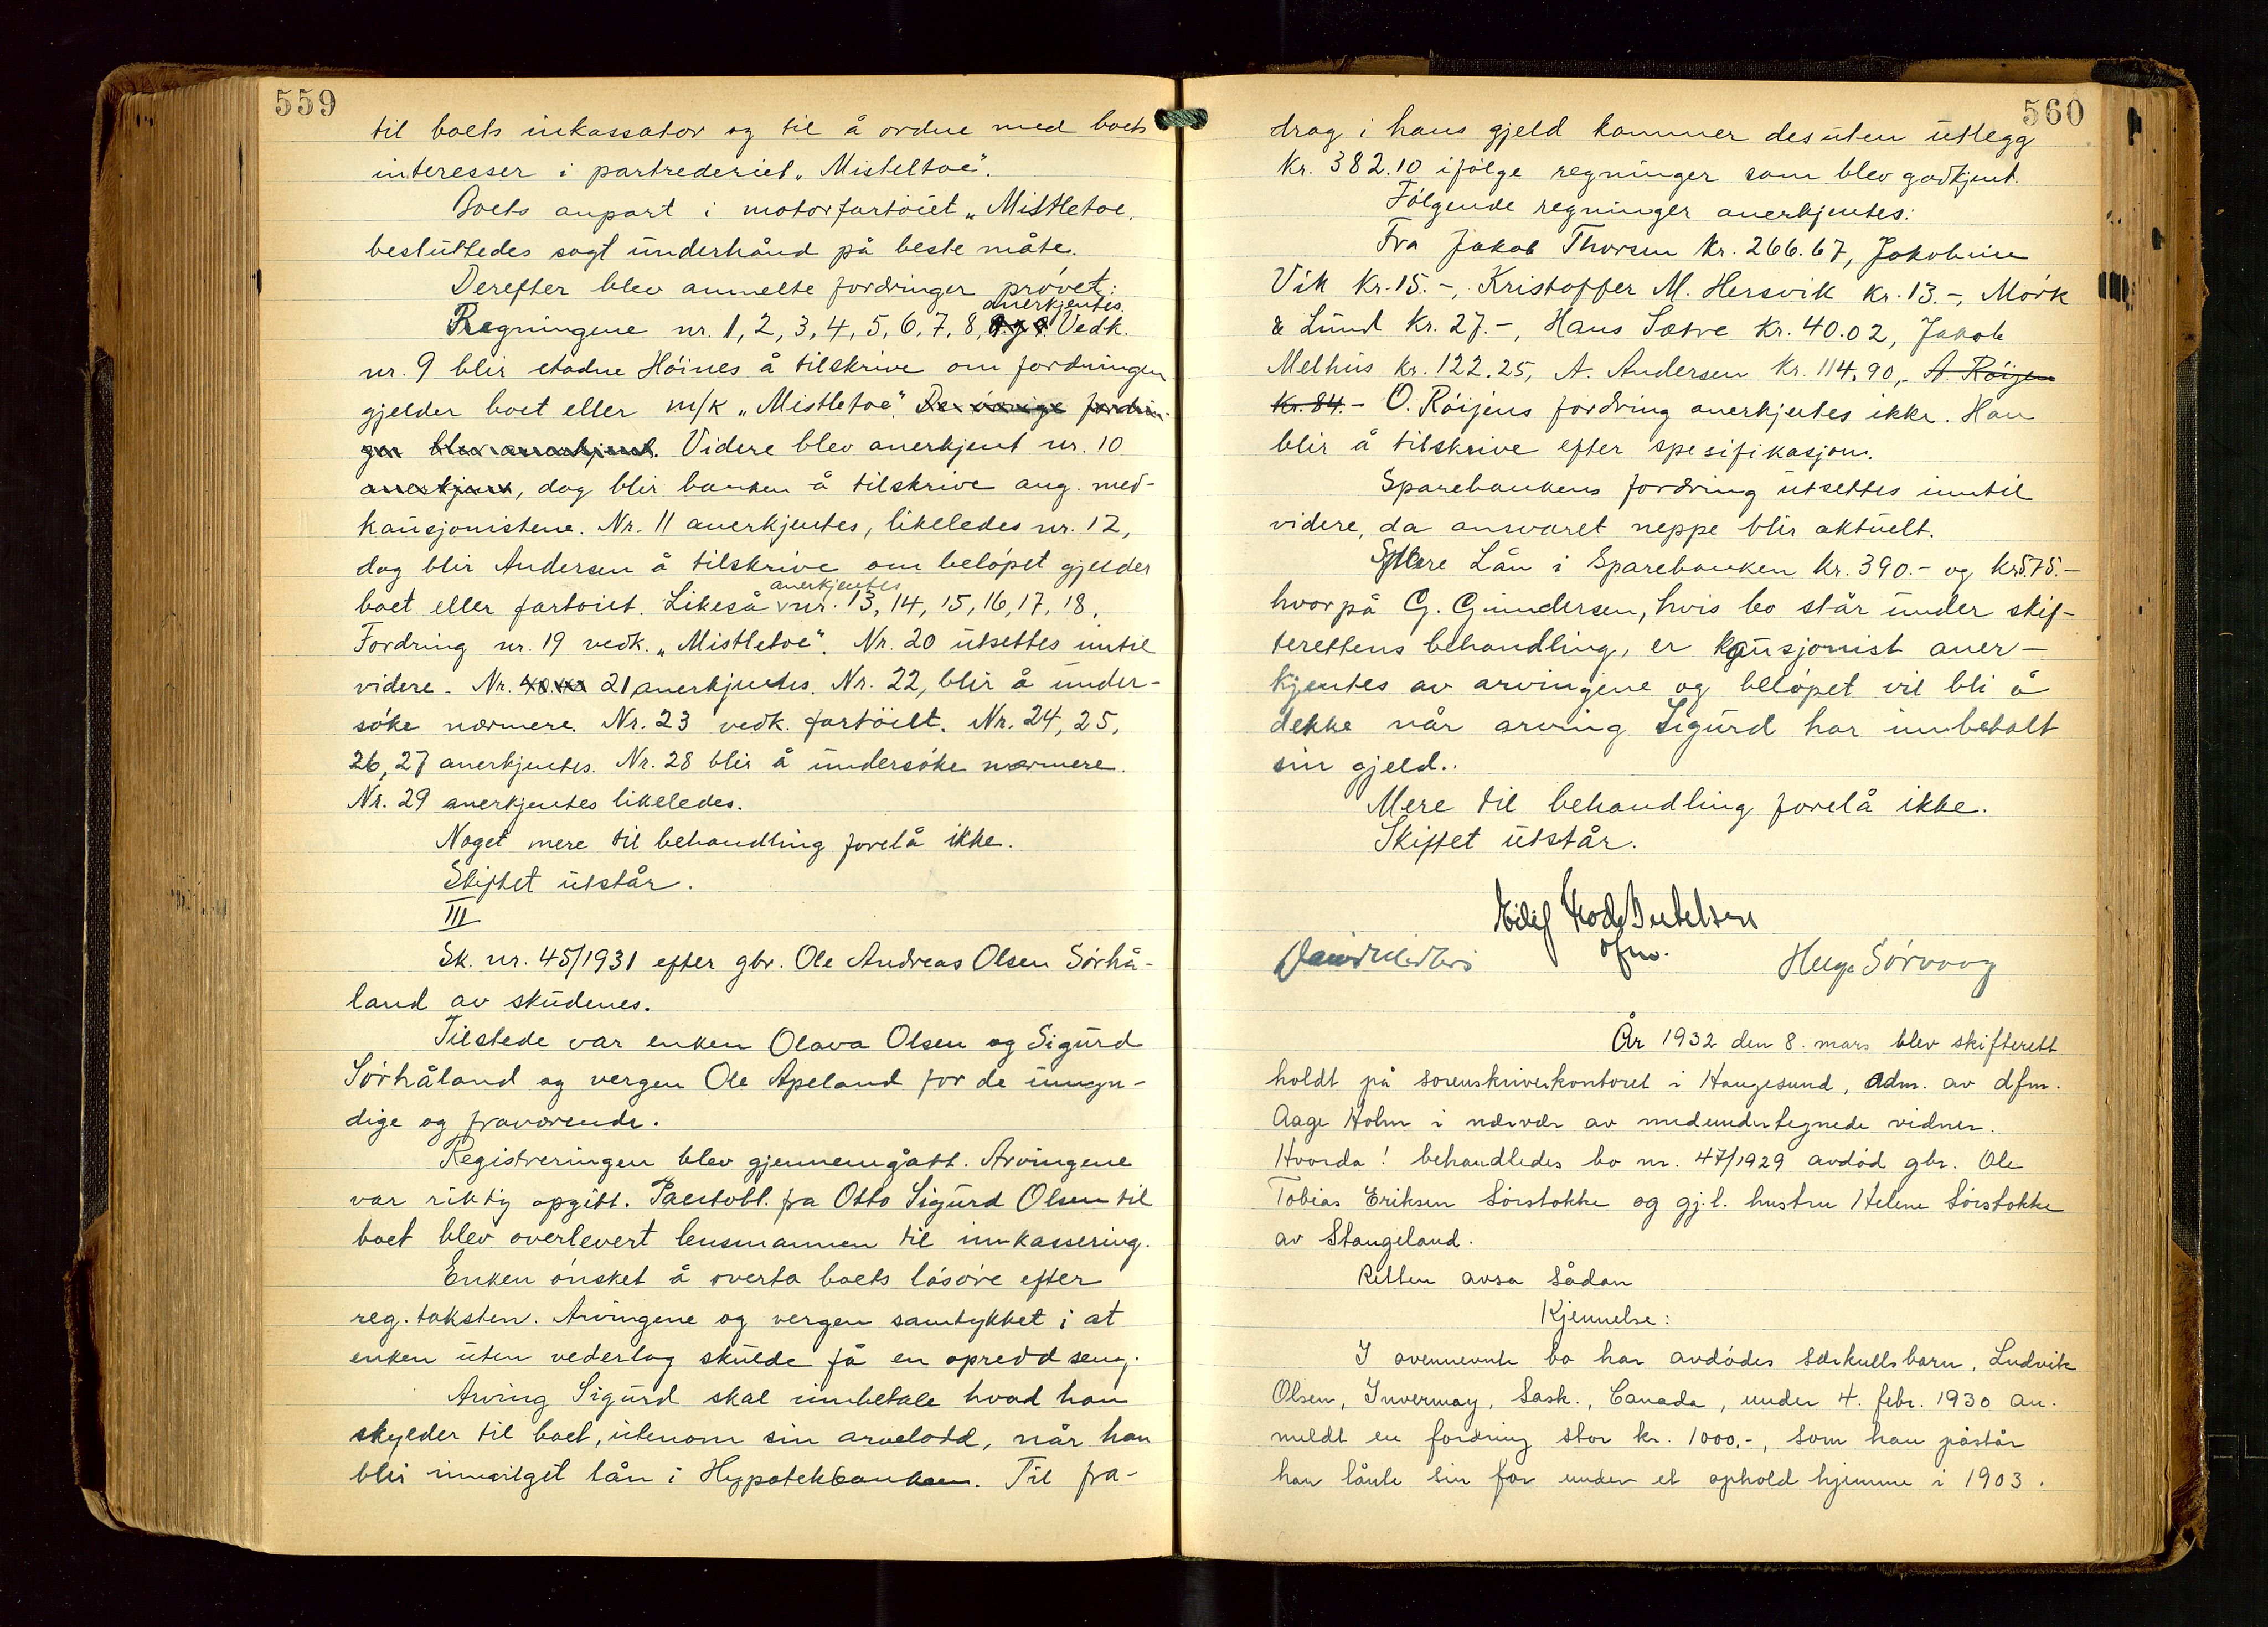 559
til boets inkassator og til å ordne med boets
interesser i partrederiet „Misteltoe".
Boets anpart i motorfartöiet „Mistletoe.
besluttedes sogt underhånd på beste måte.
Derefter blev anmelte fordringer prövet:
anerkjentes.
Regningene nr. 1, 2, 3, 4, 5, 6, 7, 8, Vedk.
nr. 9 blir etadne Höines å tilskrive om fordringen
gjelder boet eller m/k „Mistletoe". De övrige fordrin-
ger blev anerkjent. Videre blev anerkjent nr. 10
anerkjent, dog blir banken å tilskrive ang. med-
kausjonistene. Nr. 11 anerkjentes, likeledes nr. 12,
dog blir Andersen å tilskrive om belöpet gjelder
anerkjentes
boet eller fartöiet. Likeså nr. 13, 14, 15, 16, 17, 18.
Fordring nr. 19 vedk. „Mistletoe". Nr. 20 utsettes inntil
videre. Nr. 21 anerkjentes. Nr. 22, blir å under-
söke nærmere. Nr. 23 vedk. fartöiet. Nr. 24, 25,
26, 27 anerkjentes. Nr. 28 blir å undersöke nærmere.
Nr. 29 anerkjentes likeledes.
Noget mere til behandling forelå ikke.
Skiftet utstår.
III
Sk. nr. 45/1931 efter gbr. Ole Andreas Olsen Sörhå-
land av skudenes.
Tilstede var enken Olava Olsen og Sigurd
Sörhåland og vergen Ole Apeland for de umyn-
dige og fraværende.
Registreringen blev gjennemgått. Arvingene
var riktig opgitt. Pantobl. fra Otto Sigurd Olsen til
boet blev overlevert lensmannen til innkassering.
Enken önsket å overta boets lösöre efter
reg. taksten. Arvingene og vergen samtykket i at
enken uten vederlag skulde få en opredd seng.
Arving Sigurd skal innbetale hvad han
skylder til boet, utenom sin arvelodd, når han
blir innvilget lån i Hypotekbanken. Til fra-
560
drag i hans gjeld kommer desuten utlegg
Kr. 382.10 ifölge regninger som blev godkjent.
Fölgende regninger anerkjentes:
Fra Jakob Thorsen Kr. 266.67, Jakobine
Vik Kr. 15.-, Kristoffer M. Hersvik Kr. 13.-, Mörk
& Lund Kr. 27.-, Hans Sætre Kr. 40.02, Jakob
Melhus Kr. 122.25, A. Andersen Kr. 114.90, A. Röijen
Kr. 84.- O. Röijens fordring anerkjentes ikke. Han
blir å tilskrive efter spesifikasjon.
Sparebankens fordring utsettes inntil
videre, da ansvaret neppe blir aktuelt.
Lån i Sparebanken Kr. 390.- og Kr. 575.-
hvorpå G. Gundersen, hvis bo står under skif-
terettens behandling, er kausjonist aner-
kjentes av arvingene og belöpet vil bli å
dekke når arving Sigurd har innbetalt
sin gjeld.
Mere til behandling forelå ikke.
Skiftet utstår.
Eilif
ofm.
Helge Sörvaag
År 1932 den 8. mars blev skifterett
holdt på sorenskriverkontoret i Haugesund, adm. av dfm.
Aage Holm i nærvær av medundertegnede vidner.
Hvorda! behandledes bo nr. 47/1929 avdöd gbr. Ole
Tobias Eriksen Sörstokke og gj.l. hustru Helene Sörstokke
av Stangeland.
Retten avsa sådan
Kjennelse:
I ovennevnte bo har avdödes særkullsbarn, Ludvik
Olsen, Invermay, Sask., Canada, under 4. febr. 1930 an-
meldt en fordring stor kr. 1000,-, som han påstår
han lånte sin far under et ophold hjemme i 1903.